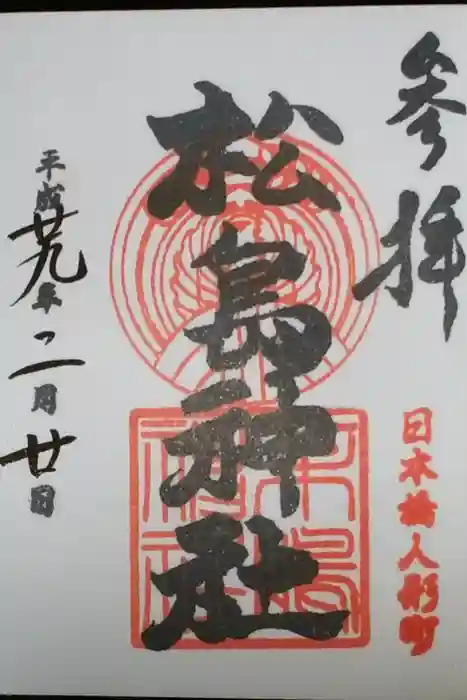 参拝
日本橋人形町
松島神社
松島神社
平成廿九年二月廿日